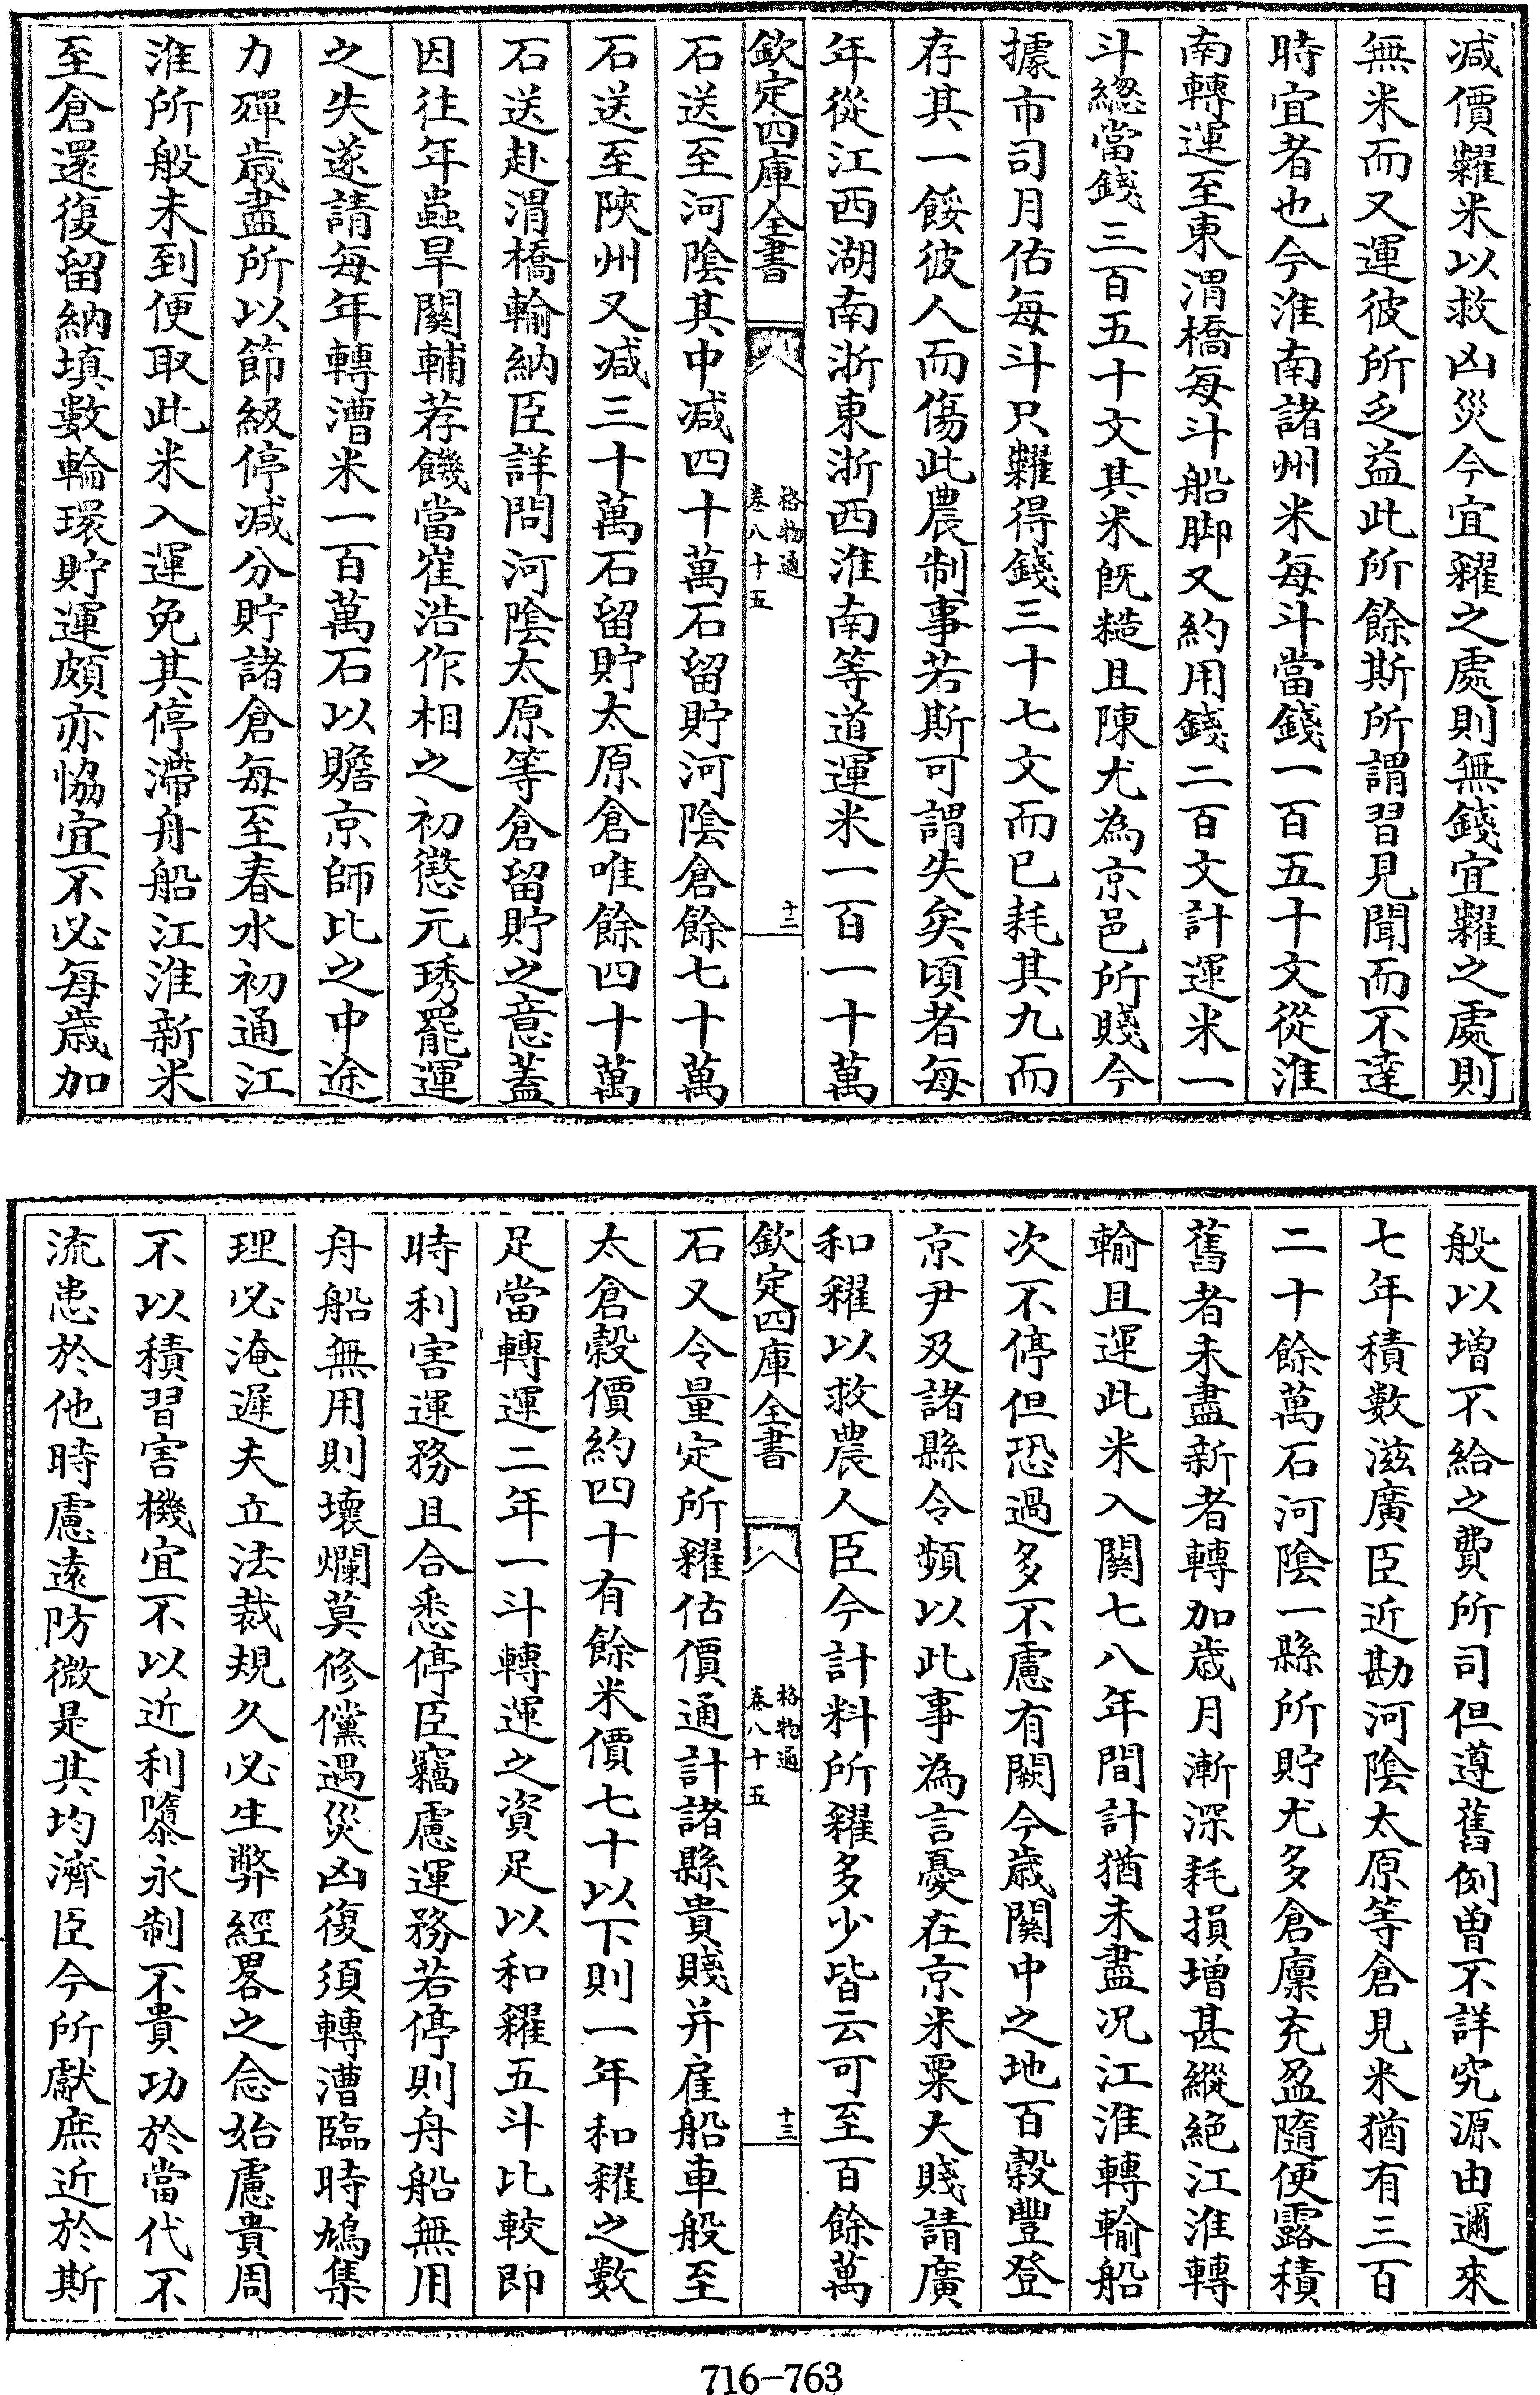 减價糶米以救凶災今宜糴之處則無錢宜糶之處則
無米而又運彼所乏益此所餘斯所謂習見聞而不達
時宜者也今淮南諸州米每斗當錢一百五十文從淮
南轉運至東渭橋每斗船脚又約用錢二百文計運米一
斗緫當錢三百五十文其米旣糙且陳尤為京邑所賤今
據市司月估每斗只糶得錢三十七文而已耗其九而
存其一餒彼人而傷此農制事若斯可謂失矣頃者每
年從江西湖南浙東浙西淮南等道運米一百一十萬
欽定四庫全書
格物通
卷八十五
十二
石送至河陰其中减四十萬石留貯河陰倉餘七十萬
石送至陝州又减三十萬石留貯太原倉唯餘四十萬
石送赴渭橋輸納臣詳問河陰太原等倉留貯之意蓋
因往年蟲旱關輔荐饑當崔浩作相之初懲元琇罷運
之失遂請每年轉漕米一百萬石以贍京師比之中途
力殫歲盡所以節級停减分貯諸倉每至春水初通江
淮所般未到便取此米入運免其停滯舟船江淮新米
至倉還復留納填數輪環貯運頗亦恊宜不必每歲加
般以增不給之費所司但遵舊例曾不詳究源由邇來
七年積數滋廣臣近勘河陰太原等倉見米猶有三百
二十餘萬石河陰一縣所貯尤多倉廩充盈隨便露積
舊者未盡新者轉加歲月漸深耗損增甚縱絕江淮轉
輸且運此米入關七八年間計猶未盡况江淮轉輸船
次不停但恐過多不慮有闕今歲關中之地百穀豐登
京尹及諸縣令頻以此事為言憂在京米粟大賤請廣
和糴以救農人臣今計料所糴多少皆云可至百餘萬
欽定四庫全書
格物通
卷八十五
十三
石又令量定所糴估價通計諸縣貴賤并雇船車般至
太倉穀價約四十有餘米價七十以下則一年和糴之數
足當轉運二年一斗轉運之資足以和糴五斗比較即
時利害運務且合悉停臣竊慮運務若停則舟船無用
舟船無用則壞爛莫修儻遇災凶復須轉漕臨時鳩集
理必淹遲夫立法裁規久必生弊經畧之念始慮貴周
不以積習害機宜不以近利隳永制不貴功於當代不
流患於他時慮遠防微是其均濟臣今所獻庶近於斯
716-763